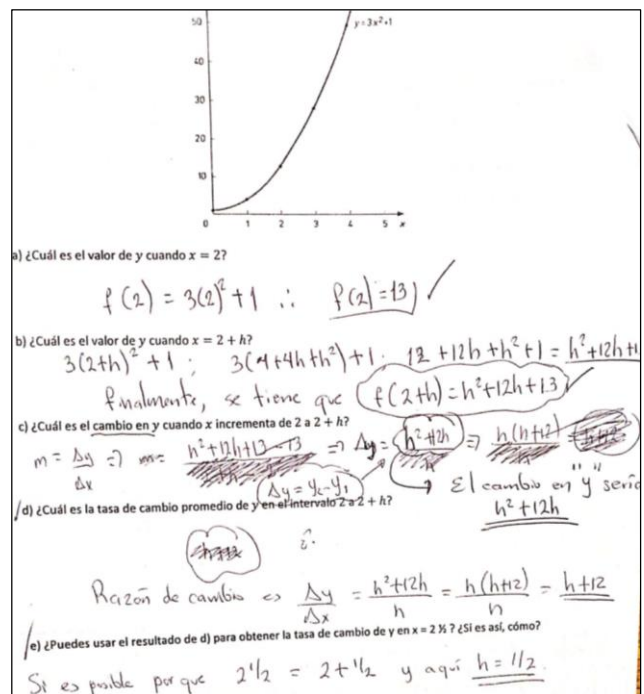 50
y=3x²+1
40
30
20
10
0 1 2 3 4 5 x
a) ¿Cuál es el valor de y cuando x = 2?
f(2) = 3(2)² + 1 ∴ f(2) = 13
b) ¿Cuál es el valor de y cuando x = 2 + h?
3(2+h)² + 1 ; 3(4+4h+h²) + 1 ; 12 + 12h + h² + 1 = h²+12h+1
finalmente, se tiene que f(2+h) = h²+12h+13
c) ¿Cuál es el cambio en y cuando x incrementa de 2 a 2 + h?
m = Δy/Δx => m = h²+12h+13-13 => Δy = h²+12h => h(h+12)
Δy = y₂-y₁
El cambio en "y" sería
h²+12h
d) ¿Cuál es la tasa de cambio promedio de y en el intervalo 2 a 2 + h?
Razón de cambio <> Δy/Δx = h²+12h/h = h(h+12)/h = h+12
e) ¿Puedes usar el resultado de d) para obtener la tasa de cambio de y en x = 2 ½ ? ¿Si es así, cómo?
Si es posible porque 2 1/2 = 2 + 1/2 y aquí h = 1/2.